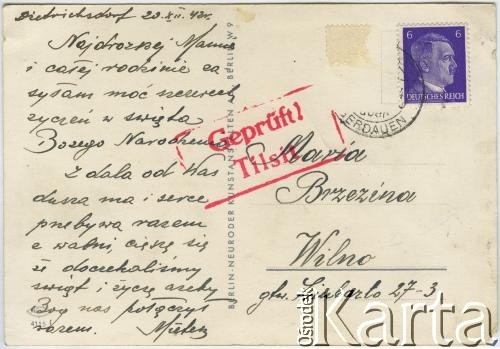 Dietrichsdorf 20.XII. 42r.
Najdroższej Mamie
i całej rodzinie za
syłam moc szczerych
życzeń w święta
Bożego Narodzenia
Z dala od Was
dusza ma i serce
przebywa razem
z wami, cieszę się
że doczekaliśmy
świąt i życzę ażeby
Bóg nas połączył
razem.
4115
BERLIN-NEURODER KUNSTANSTALTEN AG. BERLIN W 9
Geprüft!
Tilsit
6 6
DEUTSCHES REICH
GERDAUEN
Maria
Brzezina
Wilno
27-3
Ośrodek
Karta